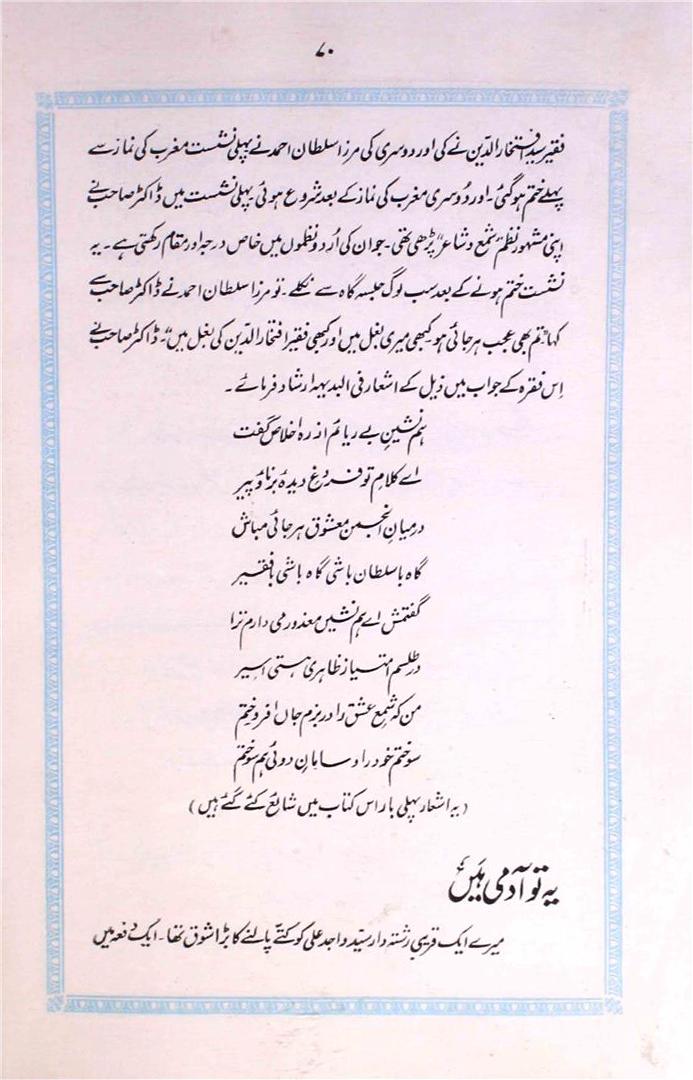 ۷۰
فقیر سید افتخار الدین نے کی اور دوسری کی مرزا سلطان احمد نے پہلی نشست مغرب کی نماز سے
پہلے ختم ہو گئی۔ اور دُوسری مغرب کی نماز کے بعد شروع ہوئی پہلی نشست میں ڈاکٹر صاحب نے
اپنی مشہور نظم "شمع و شاعر" پڑھی تھی۔ جو ان کی اُردو نظموں میں خاص درجہ اور مقام رکھتی ہے۔ یہ
نشست ختم ہونے کے بعد سب لوگ جلسہ گاہ سے نکلے۔ تو مرزا سلطان احمد نے ڈاکٹر صاحب سے
کہا "تم بھی عجب ہرجائی ہو کبھی میری بغل میں اور کبھی فقیر افتخار الدین کی بغل میں"۔ ڈاکٹر صاحب نے
اِس فقرہ کے جواب میں ذیل کے اشعار فی البدیہہ ارشاد فرمائے۔
ہم نشینِ بے ریائم از رہِ اخلاص گفت
اے کلامِ تو فروغِ دیدۂ برنا و پیر
درمیانِ انجمن معشوق ہرجائی مباش
گاہ با سلطان باشی گاہ باشی با فقیر
گفتمش اے ہم نشیں معذور می دارم ترا
در طلسمِ امتیازِ ظاہری ہستی اسیر
من کہ شمعِ عشق را در بزمِ جاں افروختم
سوختم خود را و سامانِ دوئی ہم سوختم
(یہ اشعار پہلی بار اس کتاب میں شایع کئے گئے ہیں)
یہ تو آدمی ہیں
میرے ایک قریبی رشتہ دار سیّد واجد علی کو کتّے پالنے کا بڑا شوق تھا۔ ایک دفعہ میں